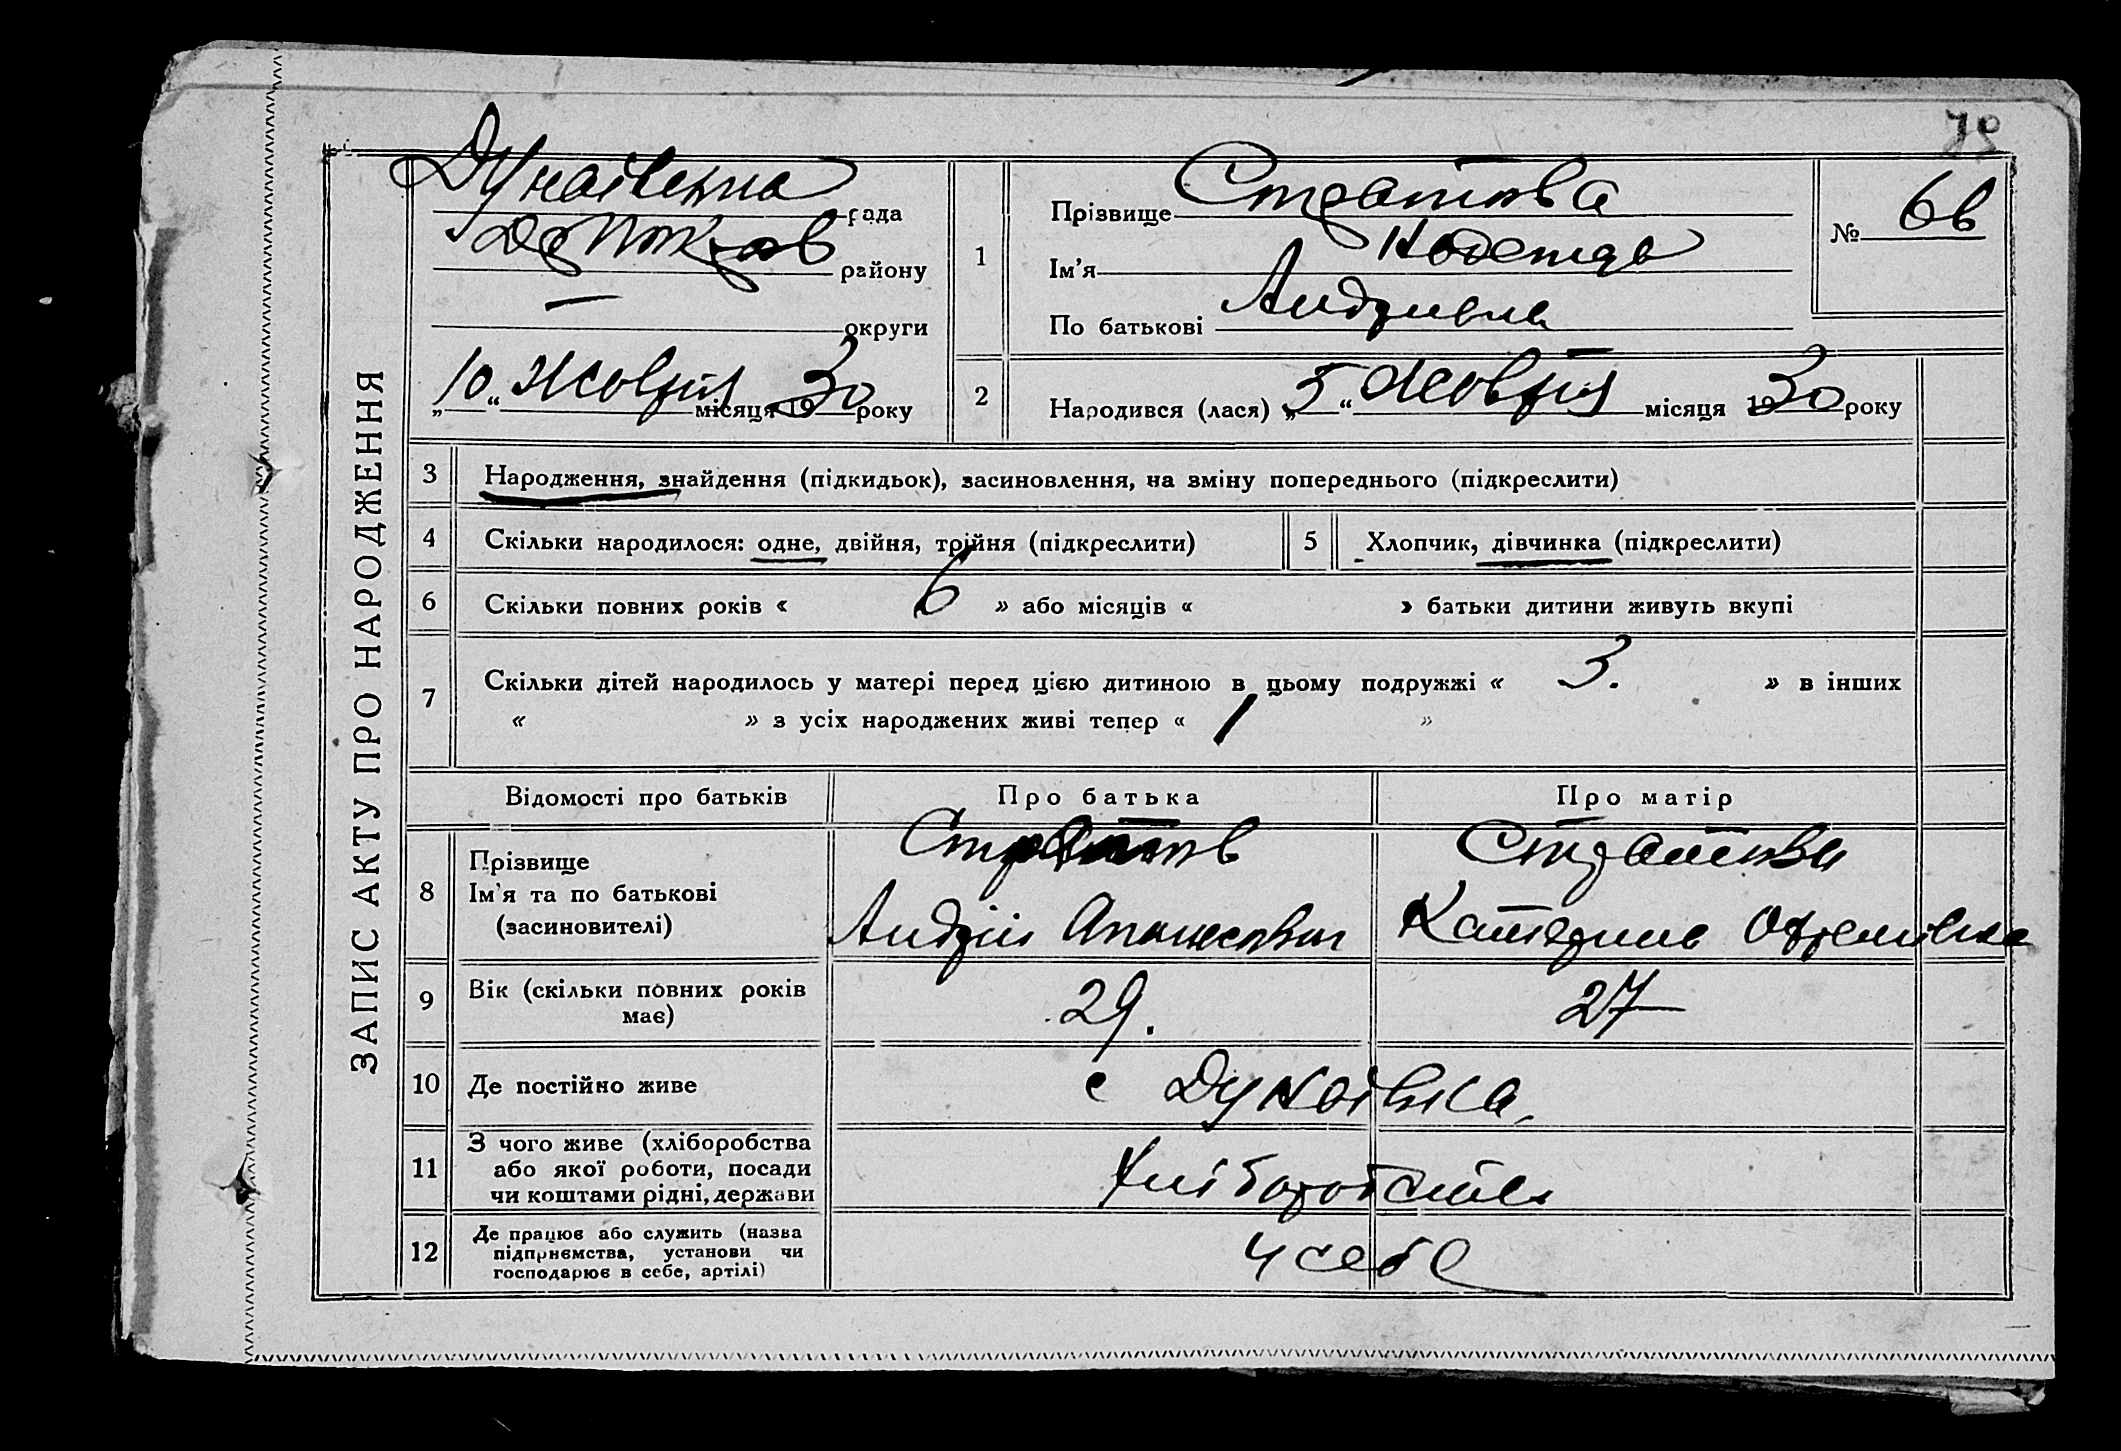 79
Дунаївська рада
району
— округи
„10“ Жовтня місяця 1930 року
1
Прізвище Стратова
Ім'я Надежда
По батькові Андріївна
№ 66
2
Народився (лася) „5“ Жовтня місяця 1930 року
ЗАПИС АКТУ ПРО НАРОДЖЕННЯ
3 Народження, знайдення (підкидьок), засиновлення, на зміну попереднього (підкреслити)
4 Скільки народилося: одне, двійня, трійня (підкреслити) 5 Хлопчик, дівчинка (підкреслити)
6 Скільки повних років « 6 » або місяців « » батьки дитини живуть вкупі
7 Скільки дітей народилось у матері перед цією дитиною в цьому подружжі « 3. » в інших
« » з усіх народжених живі тепер « 1 »
Відомості про батьків Про батька Про матір
8
Прізвище
Ім'я та по батькові
(засиновителі)
Андрій Апанасович
Стратова
Катерина
9 Вік (скільки повних років
має)
29. 27
10 Де постійно живе с Дунаівка,
11 З чого живе (хліборобства
або якої роботи, посади
чи коштами рідні, держави
Хліборобства
12 Де працює або служить (назва
підприємства, установи чи
господарює в себе, артілі)
У себе